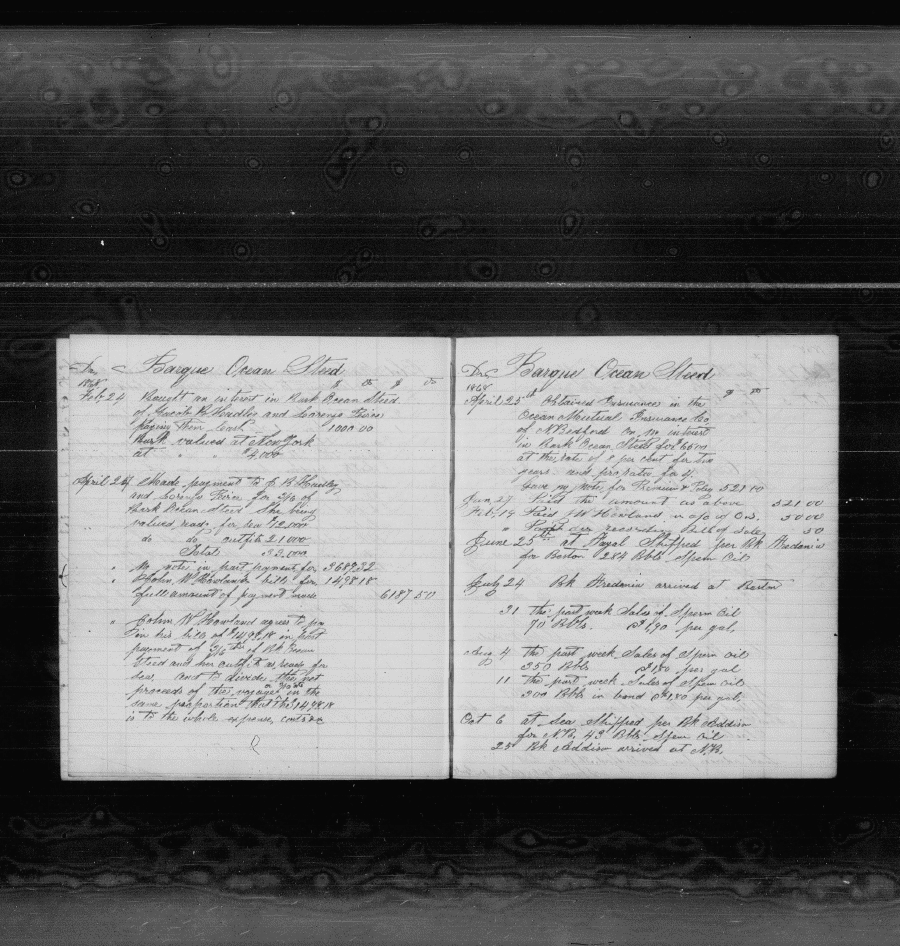 Dr Barque Ocean Steed
1868
Feb. 24 Bought an interest in Bark Ocean Steed
of Jacob B Hadley and Lorenzo Peirce
paying them Cash 1000 00
Bark valued at New York
at " " $4,000
April 24 Made payment to J. B. Hadley
and Lorenzo Peirce for of
Bark Ocean Steed She being
valued ready for sea $12,000
do do outfits 21.000
Total
" My notes in part payment for 3689.32
" John W. Howlands bills for 1498.18
full amount of payment made 6187 50
" John W Howland agrees to put
in his bills of $1498.18 in part
payment of of Bk Ocean
Steed and her outfits as ready for
sea, and to divide the net
proceeds of the voyage on the
same proportion that this 1498.18
is to the whole expense, cost &c
Dr Barque Ocean Steed
1868
April 25th Obtained Insurance in the
Ocean Mutual Insurance Co.
of N Bedford on my interest
in Bark Ocean Steed for
at the rate of 8 per cent for
year and pro rata for
Gave my Note, for Premium & Policy 521 00
Jun 27 Paid the amount as above 521 00
Feb. 19 Paid J W Howland in a/c of O.S. 50 00
" Paid for recording bill of sale 50
June 25th at Fayal Shipped per Bk Fredonia
for Boston 284 Bbls Sperm Oil
July 24 Bk Fredonia arrived at Boston
31 the past week Sales of Sperm Oil
70 Bbls. $1.90 per gal,
Aug 4 the past week Sales of Sperm Oil
350 Bbls $1.80 per gal
11 the past week Sales of Sperm Oil
200 Bbls in bond $1.80 per gal,
Oct 6 at Sea Shipped per Bk Addison
for N.B. 43 Bbls Sperm Oil
25 Bk Addison arrived at N.B.